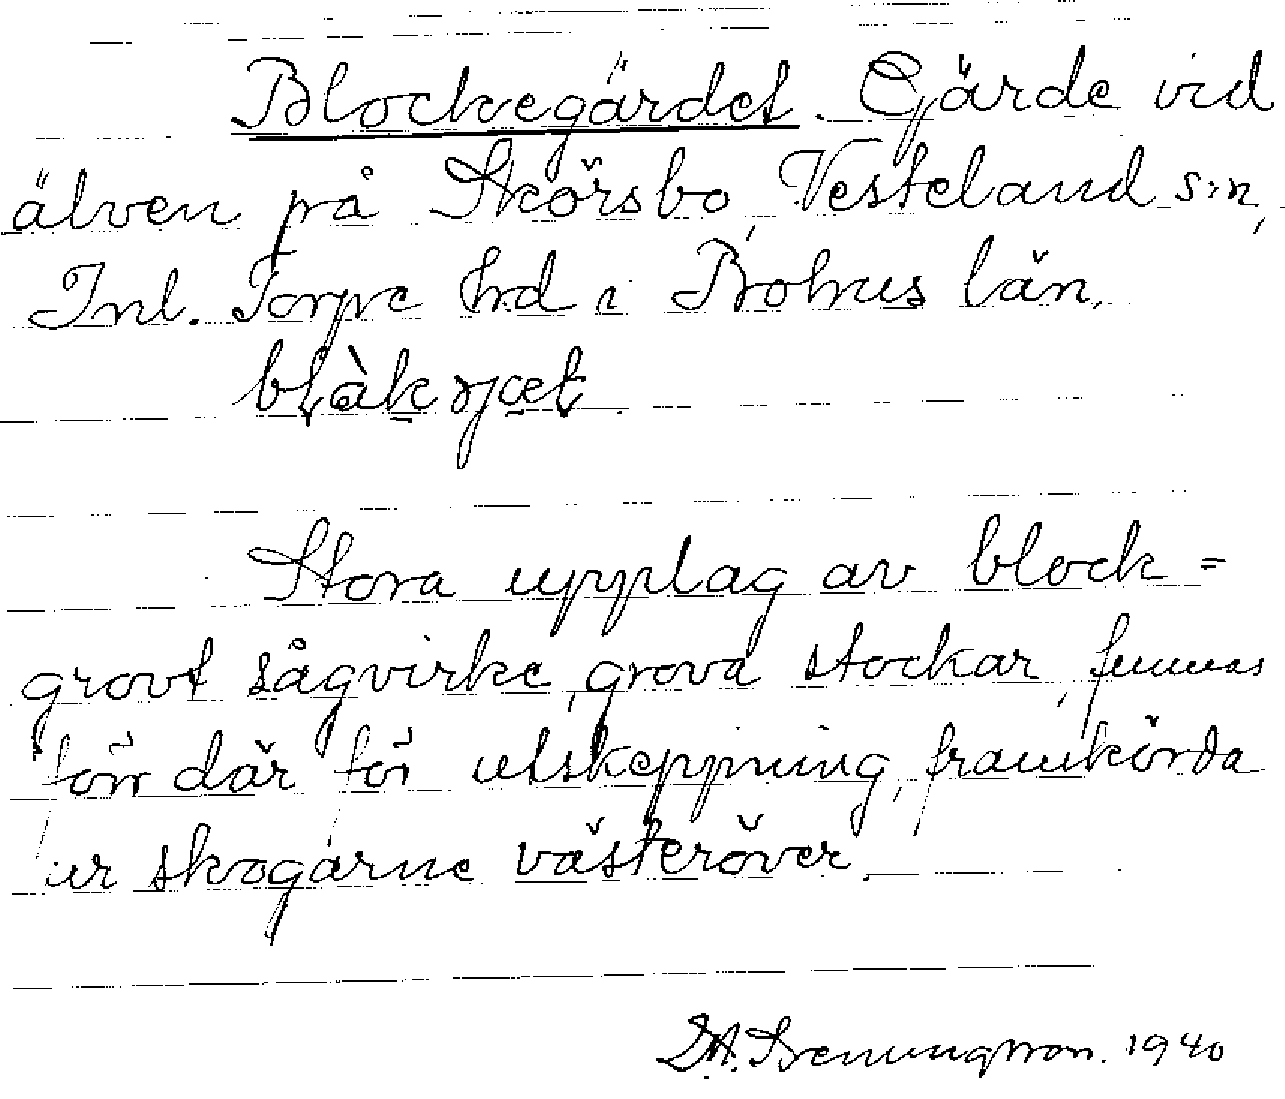 Blockegärdet. Gärde vid
älven på Skörsbo, Vesteland s:n,
Inl. Torpe hrd i Bohus län.
blàkɲæt
Stora upplag av block=
grovt sågvirke, grova stockar, funnos
förr där för utskeppning, framkörda
ur skogarne västeröver.
1940